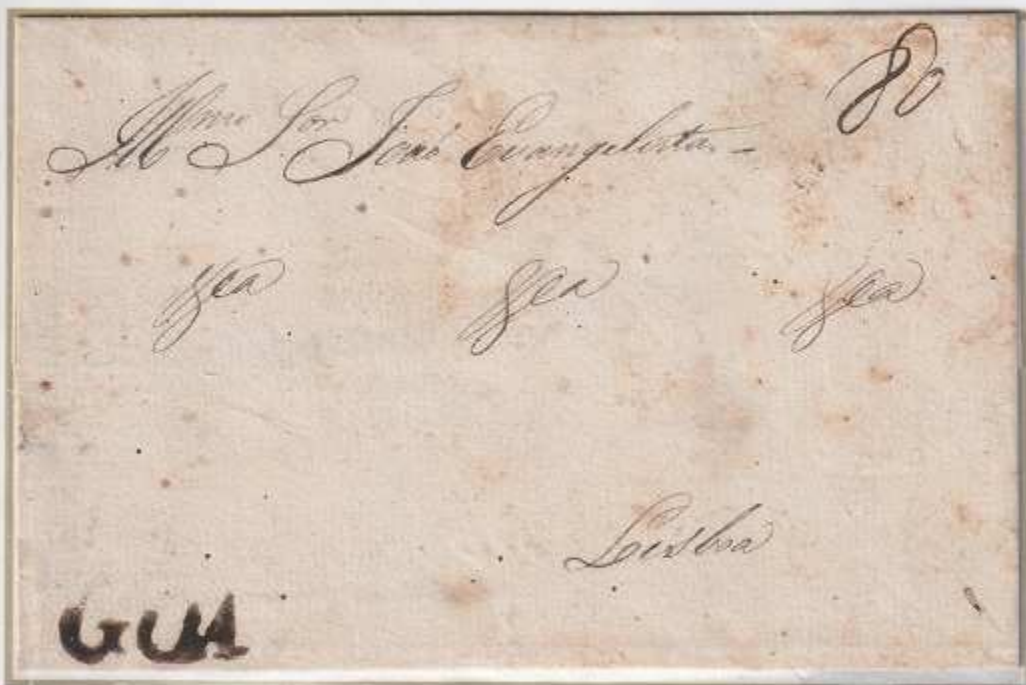 80
Illmo Snr João Evangelista
&ca &ca &ca
Lisboa
GOA